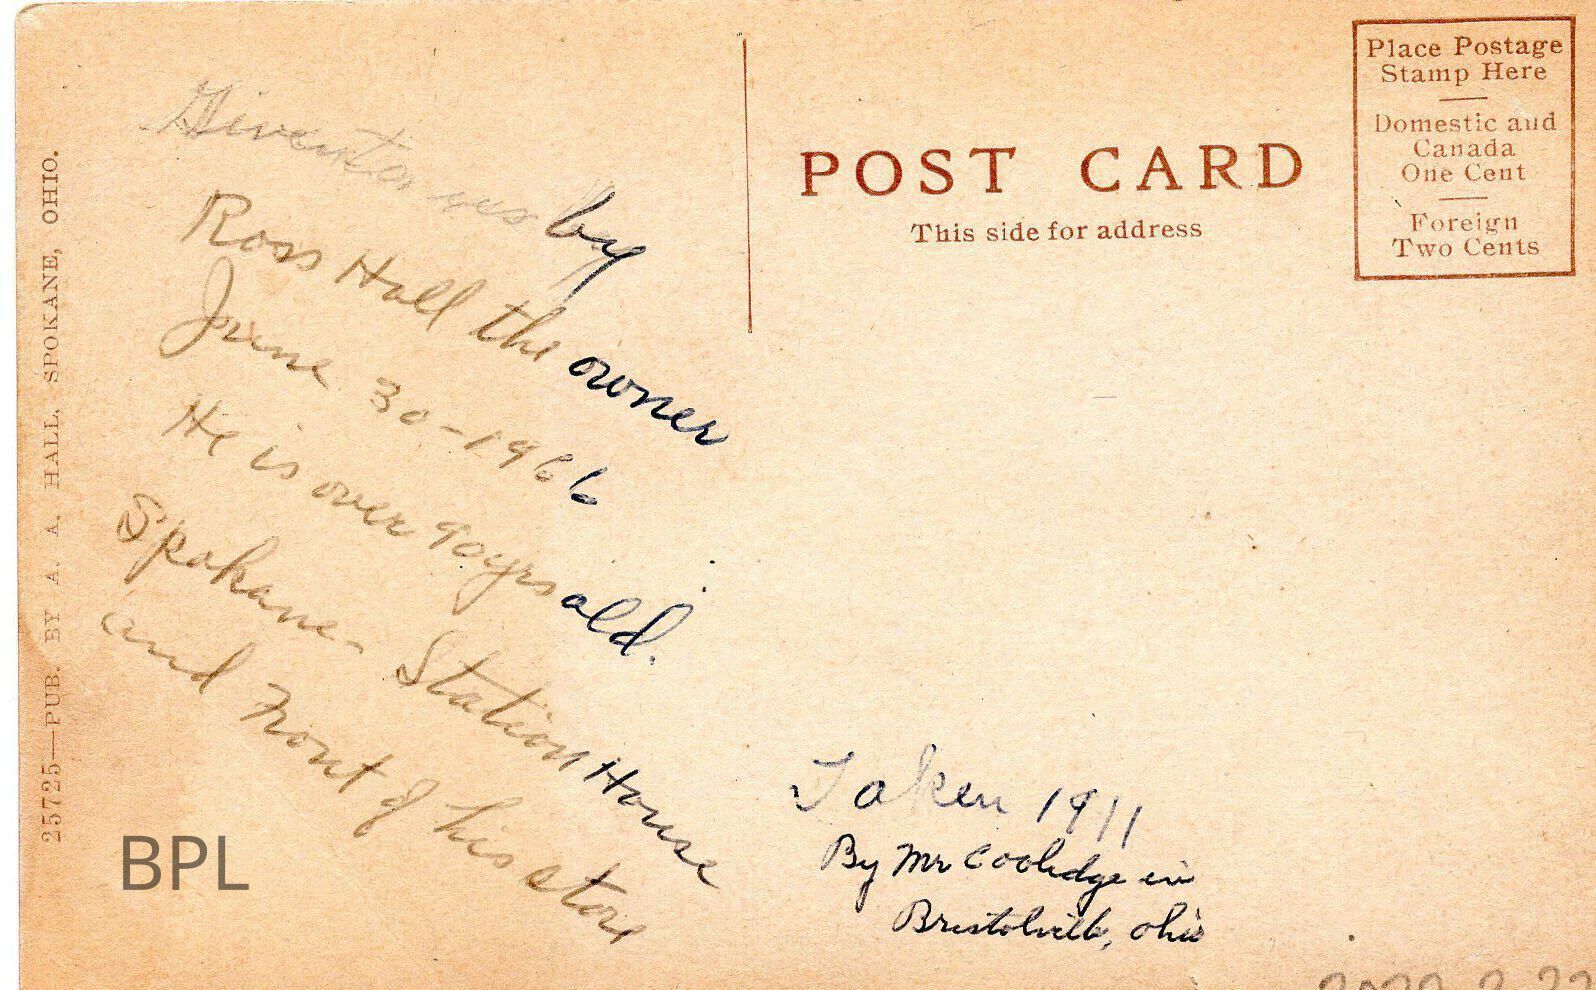 Given to us by
Ross Hall the owner
June 30-1966
He is over 90yrs old.
Spokane- Station House
and Front of his store
POST CARD
This side for address
Place Postage
Stamp Here
Domestic and
Canada
One Cent
Foreign
Two Cents
Taken 1911
By Mr Coolidge in
Bristolville, Ohio
25725—PUB. BY A. A. HALL, SPOKANE, OHIO.
BPL